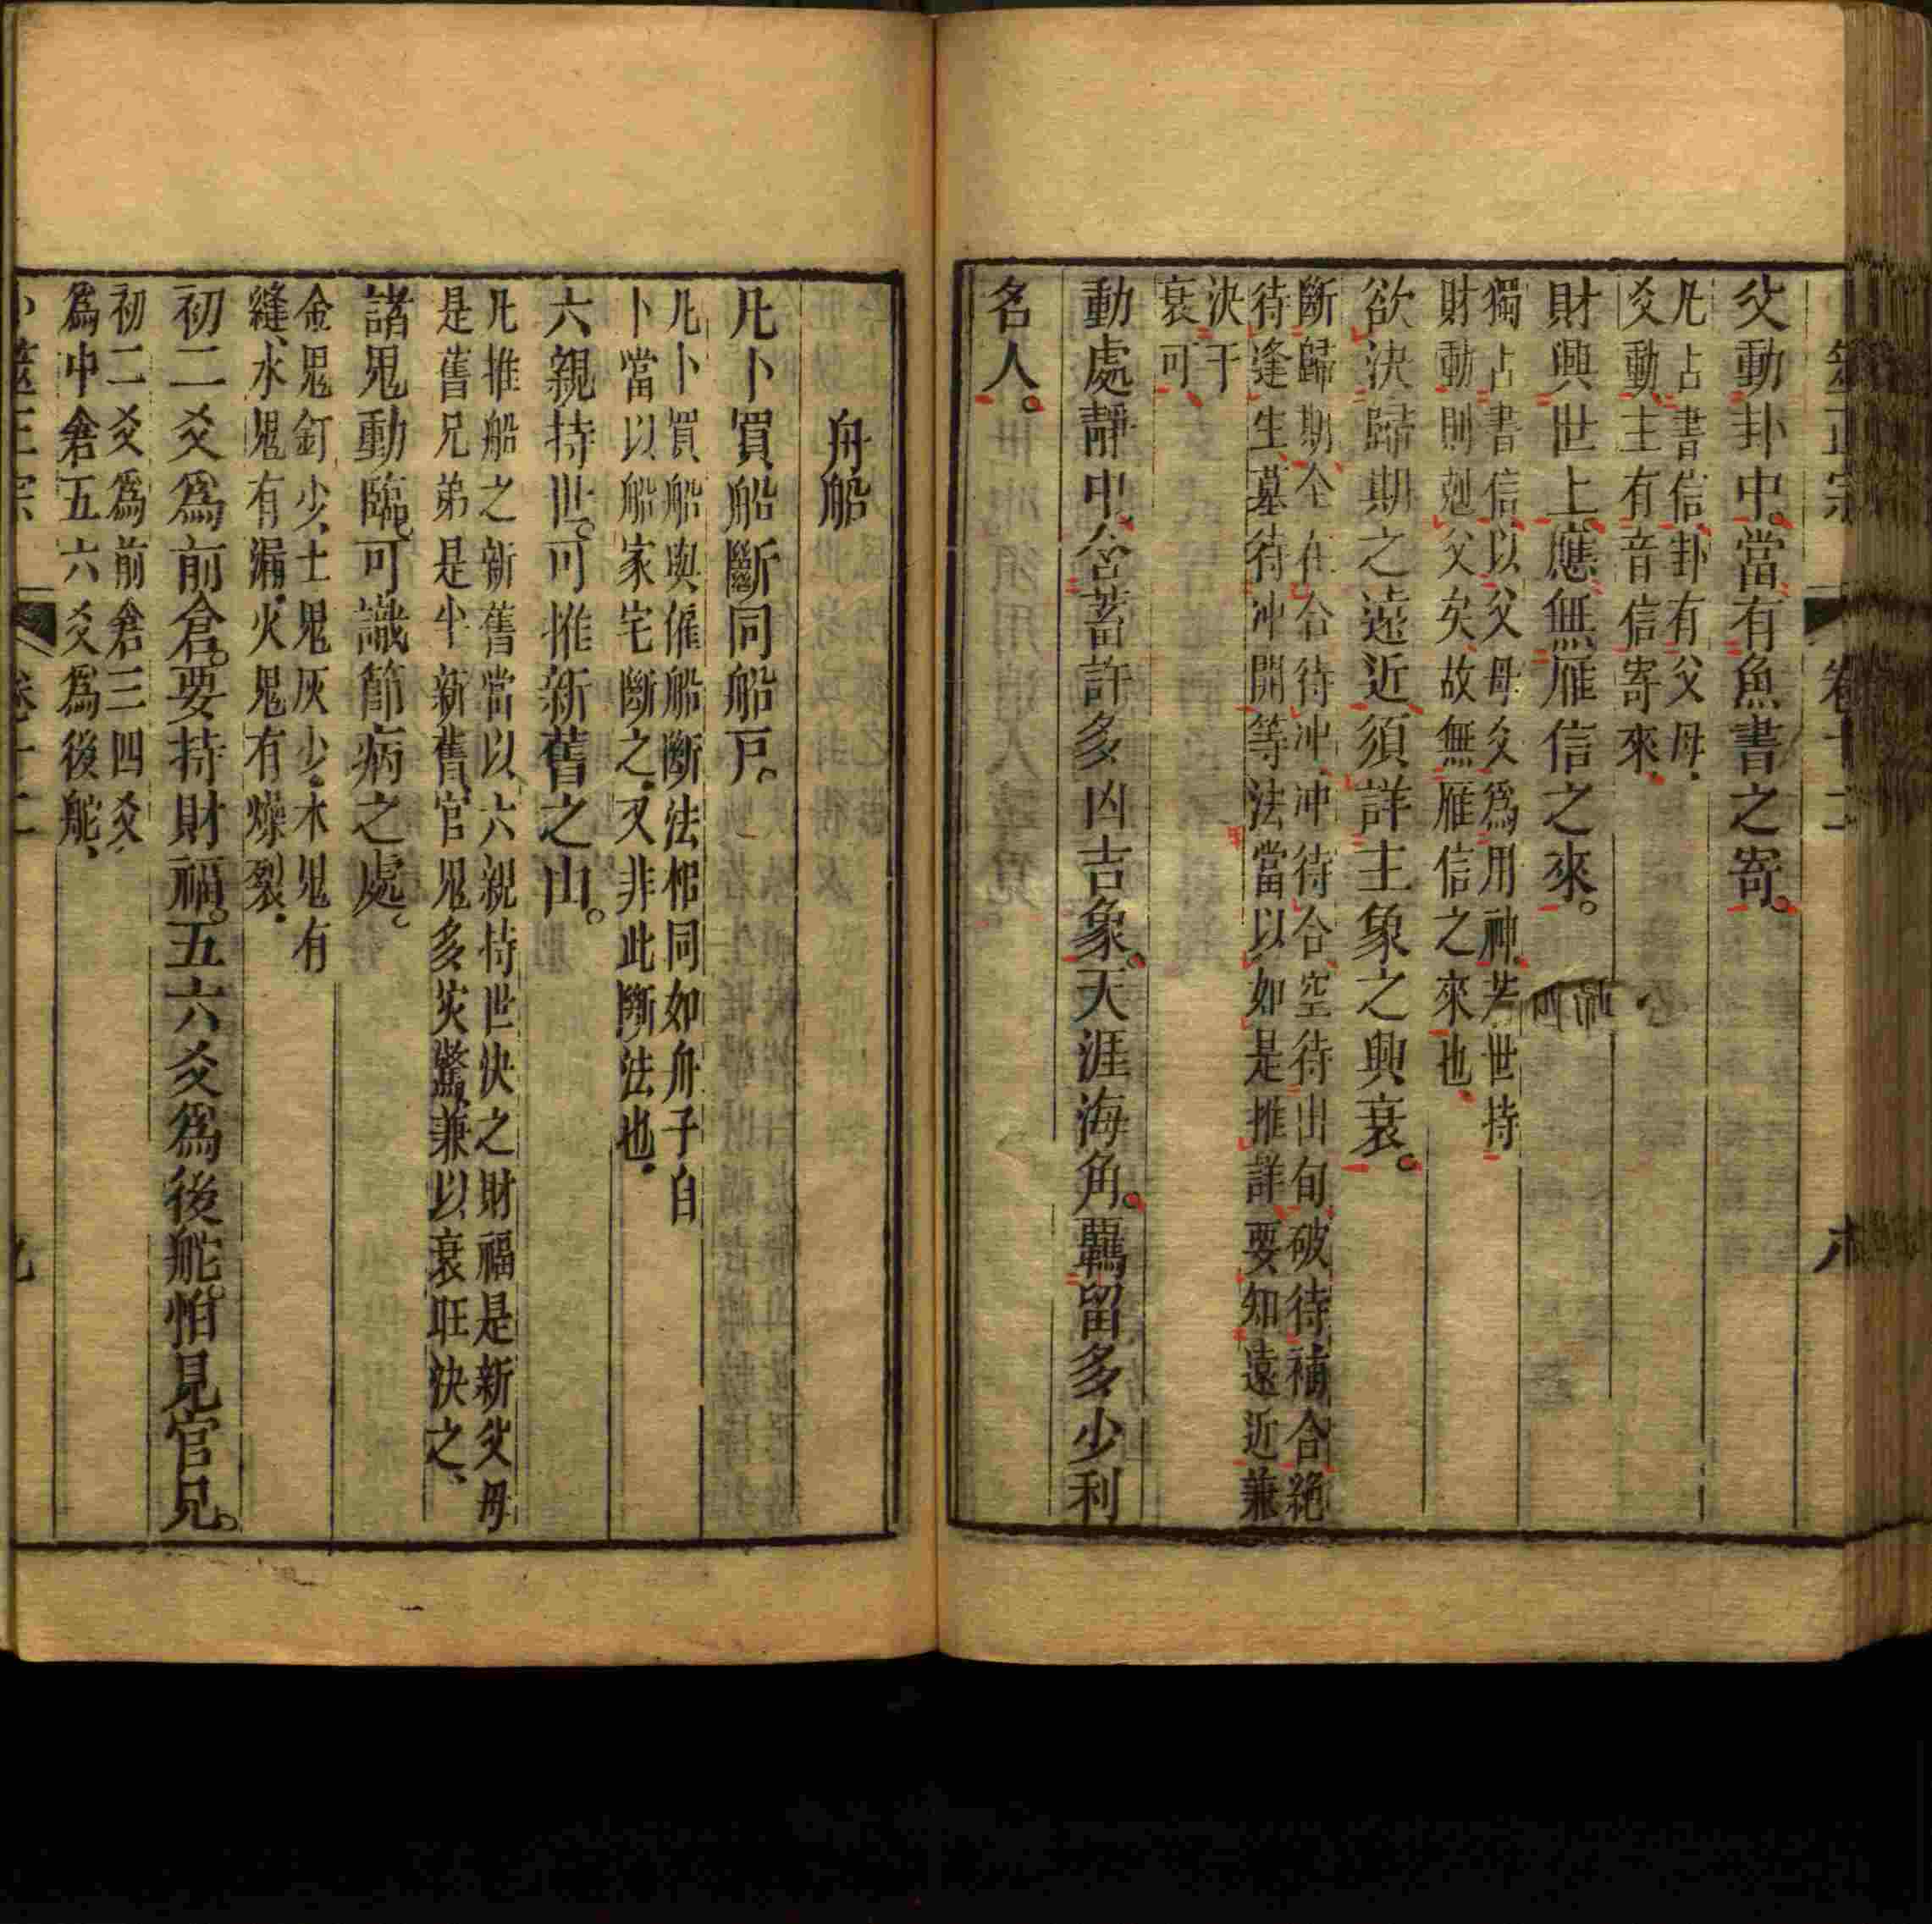 父動卦中。當有魚書之寄。
凡占書信、卦有父母、
爻動、主有音信寄來、
財興世上。應無雁信之來。
獨占書信、以父母爻爲用神、若世持
財動、則剋父矣、故無雁信之來也、
欲決歸期之遠近。須詳主象之興衰。
斷歸期、全在合待冲、冲待合、空待出旬、破待補合、絶
待逢生、墓待冲開等法、當以如是推詳、要知遠近、兼
決于
衰可
動處靜中。含蓄許多凶吉象。天涯海角。羈留多少利
名人。
舟船
凡卜買船斷同船戸。
凡卜買船與僱船斷法相同、如舟子自
卜、當以船家宅斷之、又非此斷法也、
六親持世。可推新舊之由。
凡推船之新舊、當以六親持世決之、財福是新、父母
是舊、兄弟是半新舊、官鬼多灾驚、兼以衰旺決之、
諸鬼動臨。可識節病之處。
金鬼釘少、土鬼灰少、木鬼有
縫、水鬼有漏、火鬼有燥裂、
初二爻爲前倉。要持財福。五六爻爲後舵。怕見官兄。
初二爻爲前倉、三四爻
爲中倉、五六爻爲後舵、